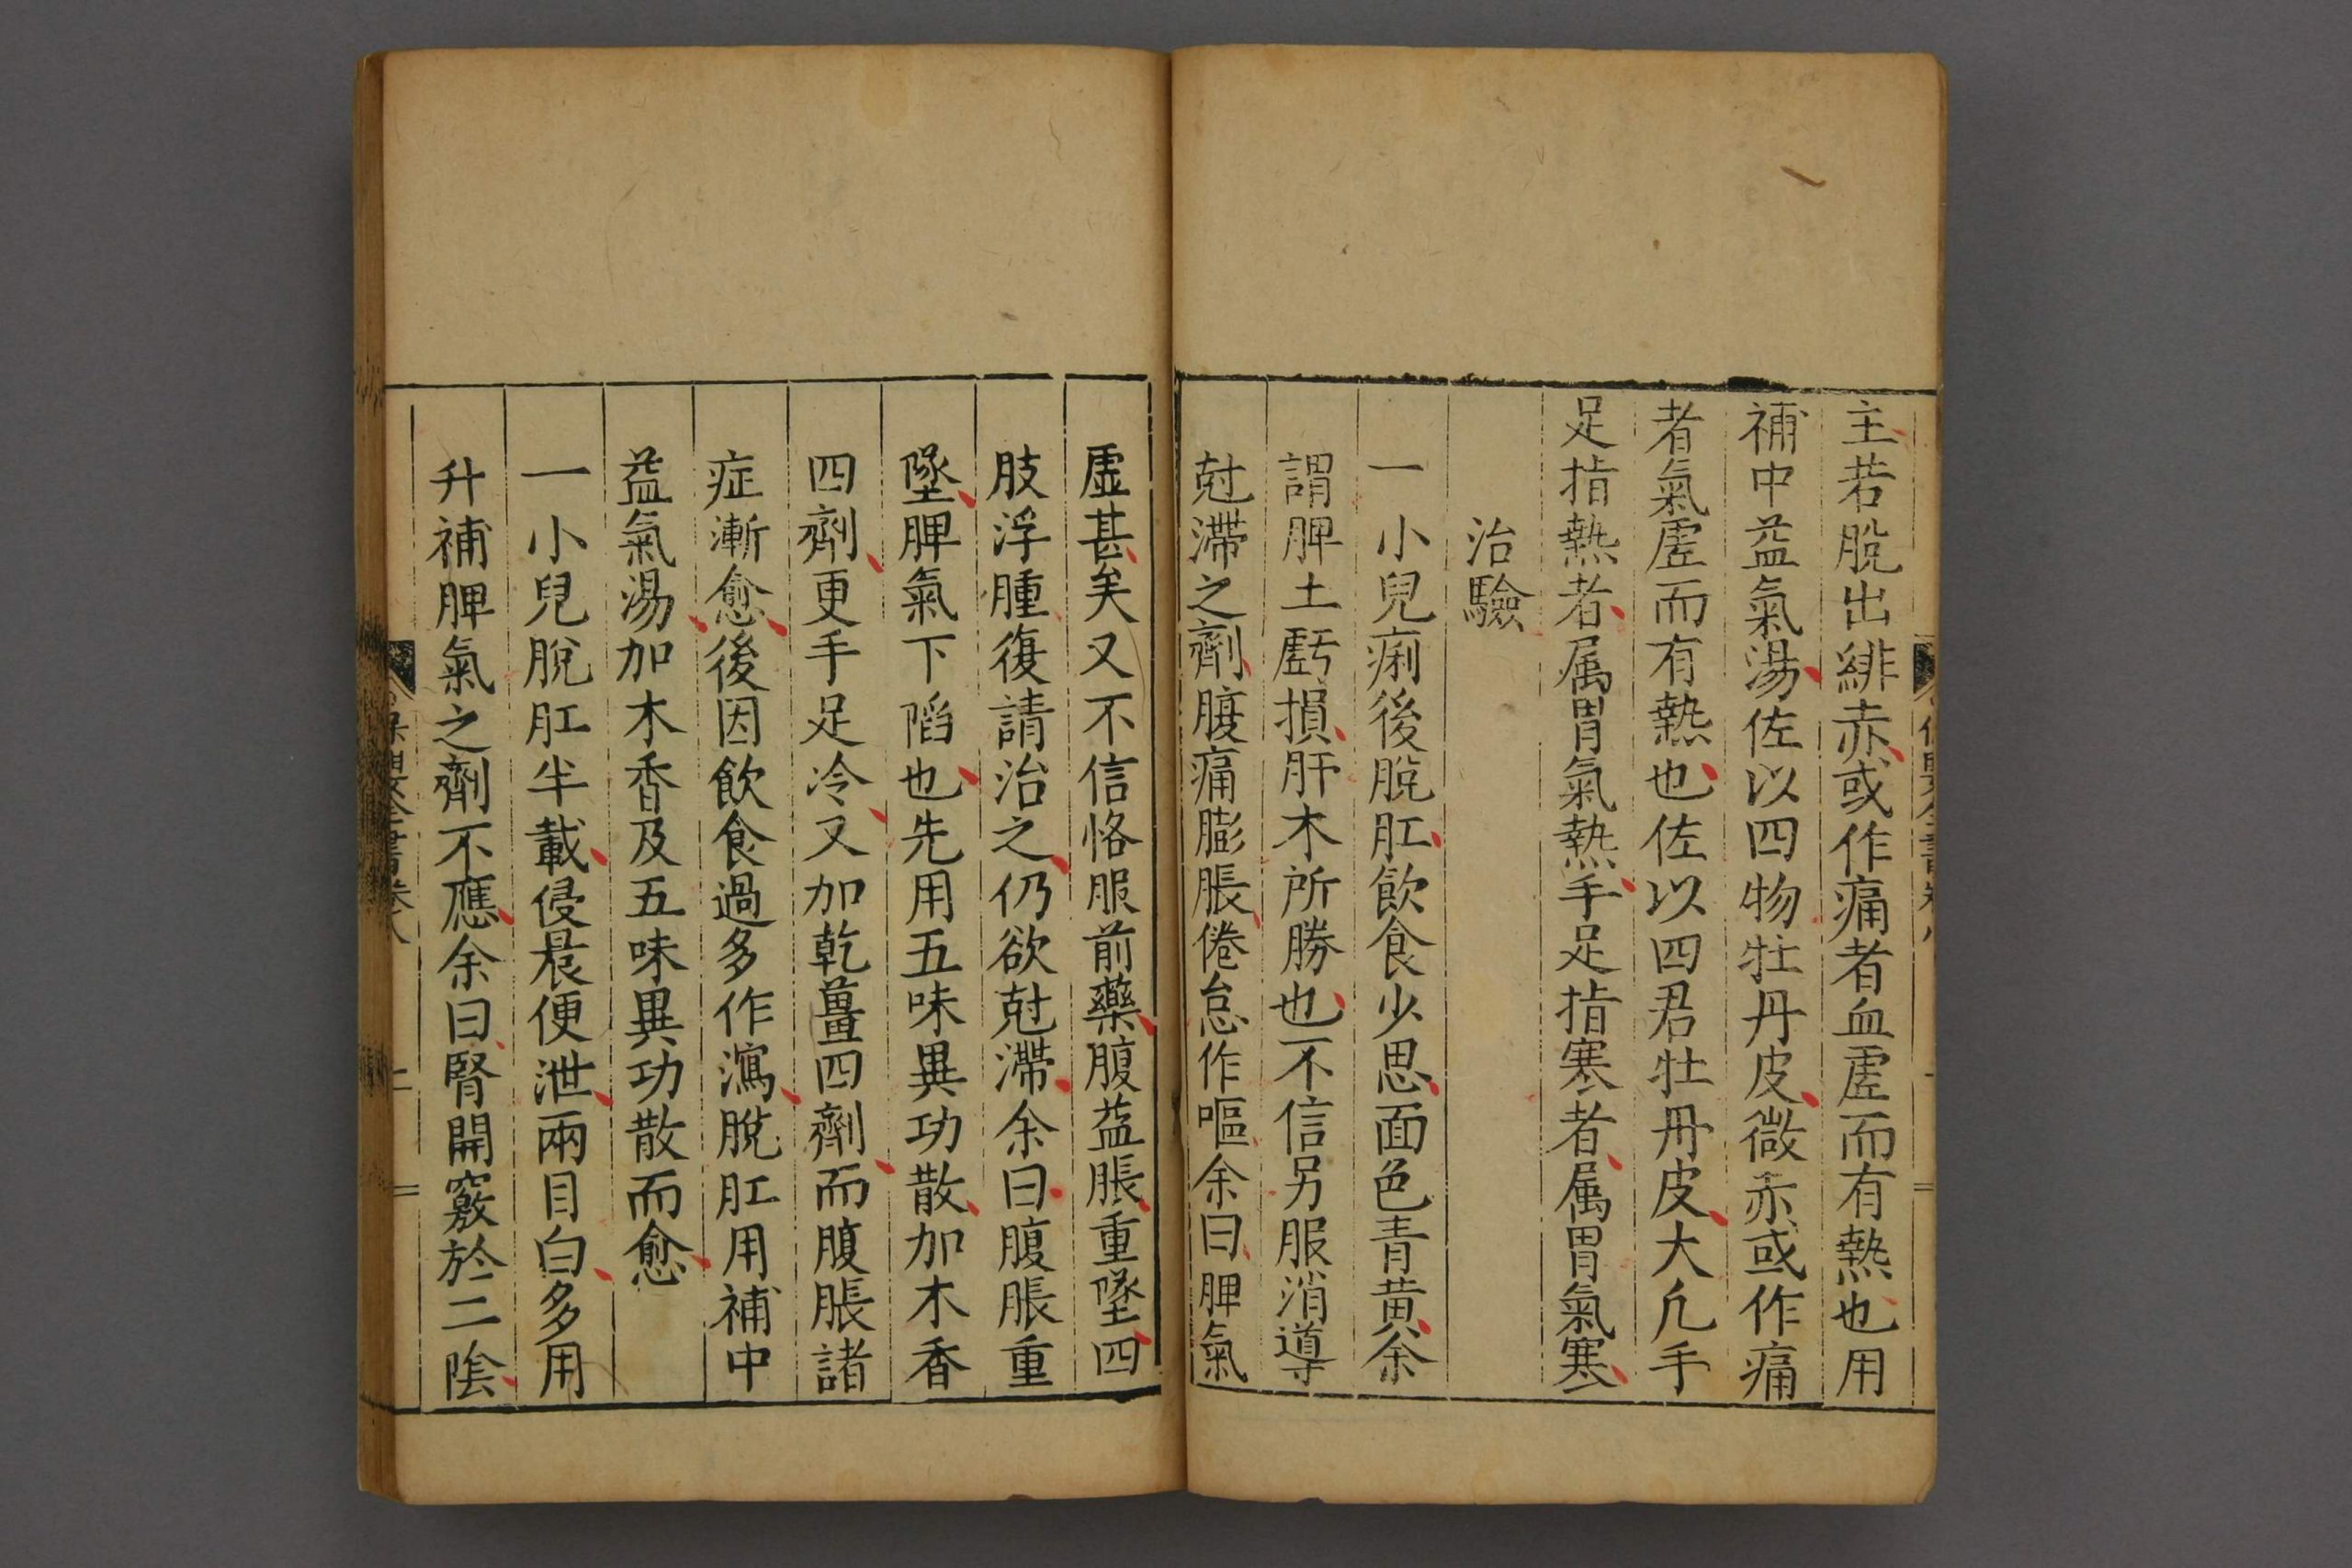 主若脫出緋赤或作痛者血虛而有熱也用
補中益氣湯佐以四物牡丹皮微赤或作痛
者氣虛而有熱也佐以四君牡丹皮大凡手
足指熱者属胃氣熱手足指寒者属胃氣寒
治驗
一小兒痢後脫肛飲食少思面色青黃余
謂脾土虧損肝木所勝也不信另服消導
尅滯之劑腹痛膨脹倦怠作嘔余曰脾氣
虛甚矣又不信恪服前藥腹益脹重墜四
肢浮腫復請治之仍欲尅滯余曰腹脹重
墜脾氣下陷也先用五味異功散加木香
四劑更手足冷又加乾薑四劑而腹脹諸
症漸愈後因飲食過多作瀉脫肛用補中
益氣湯加木香及五味異功散而愈
一小兒脫肛半載侵晨便泄兩目白多用
升補脾氣之劑不應余曰腎開竅於二陰
保嬰全書卷八